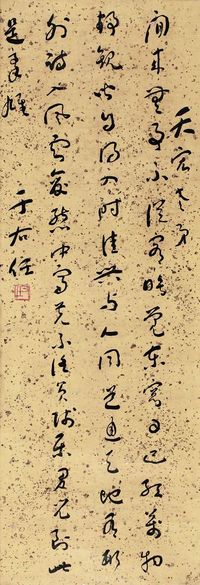 天宏老弟
閒來無事不從容睡覺東窗日已紅萬物
靜觀皆自得四時佳興與人同道通天地有形
外思入風雲變態中富貴不淫貧賤樂男兒到此
是豪雄
于右任